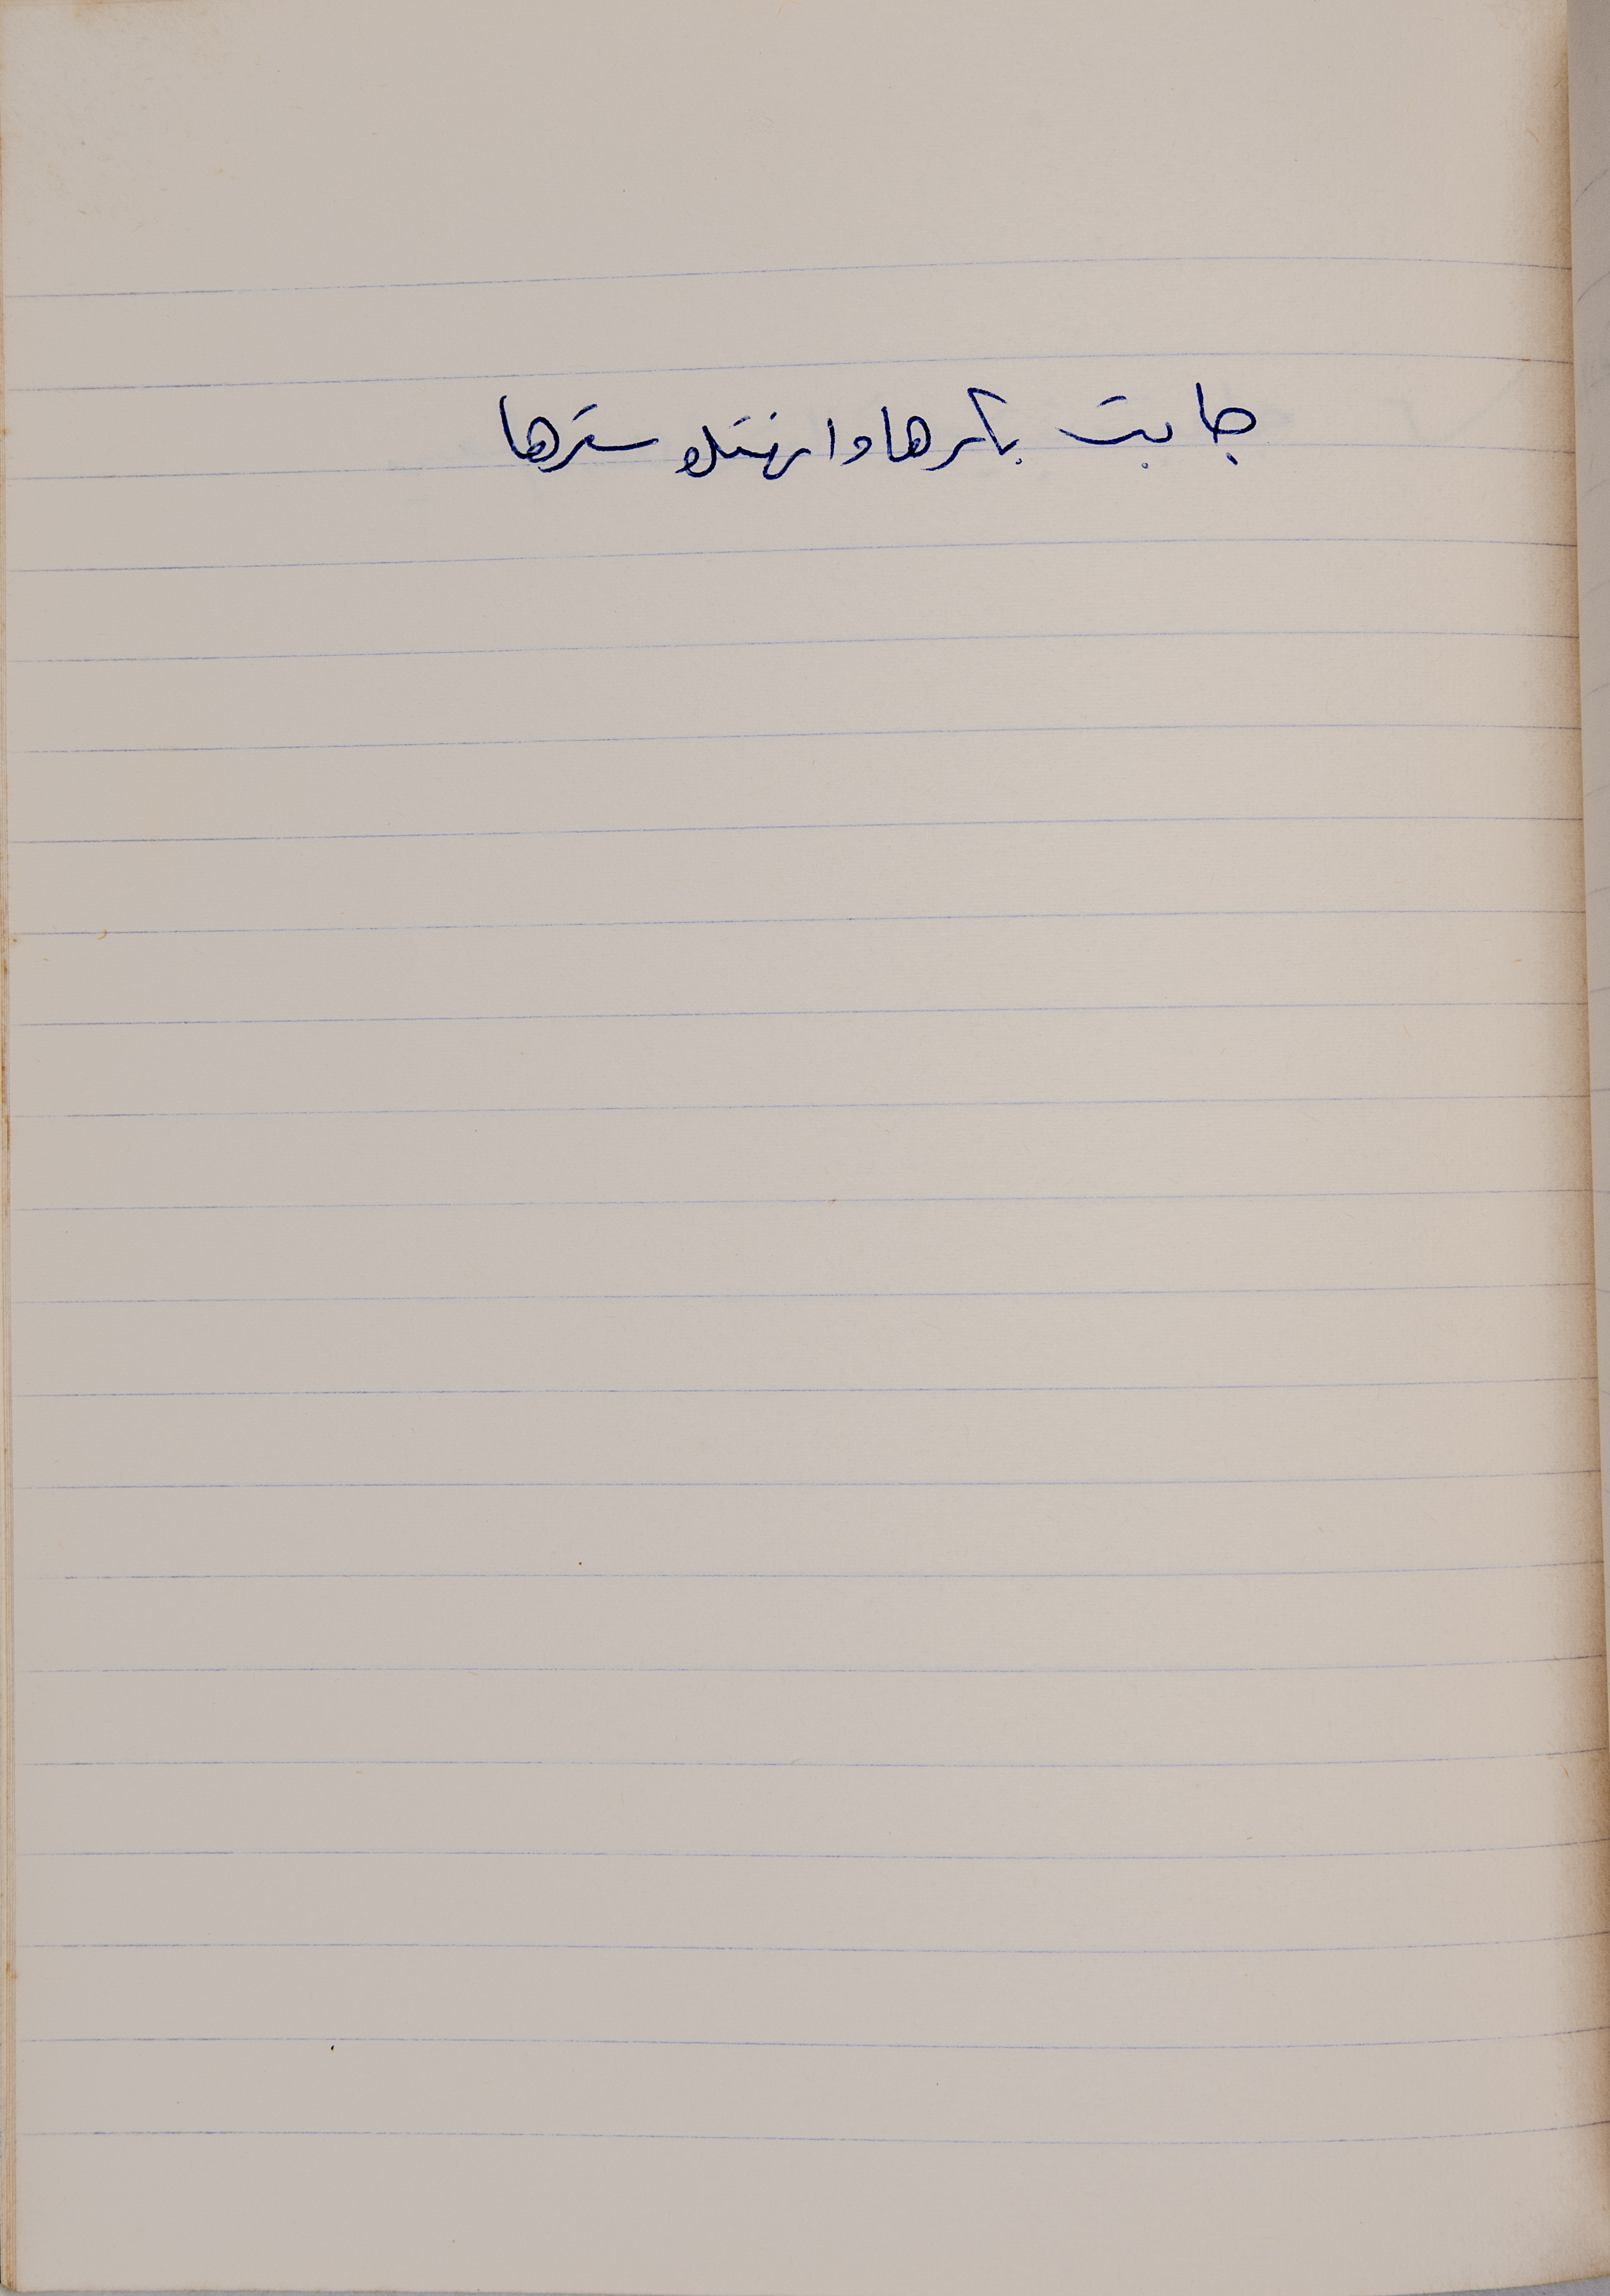 جابت بكرها وانهتك سترها